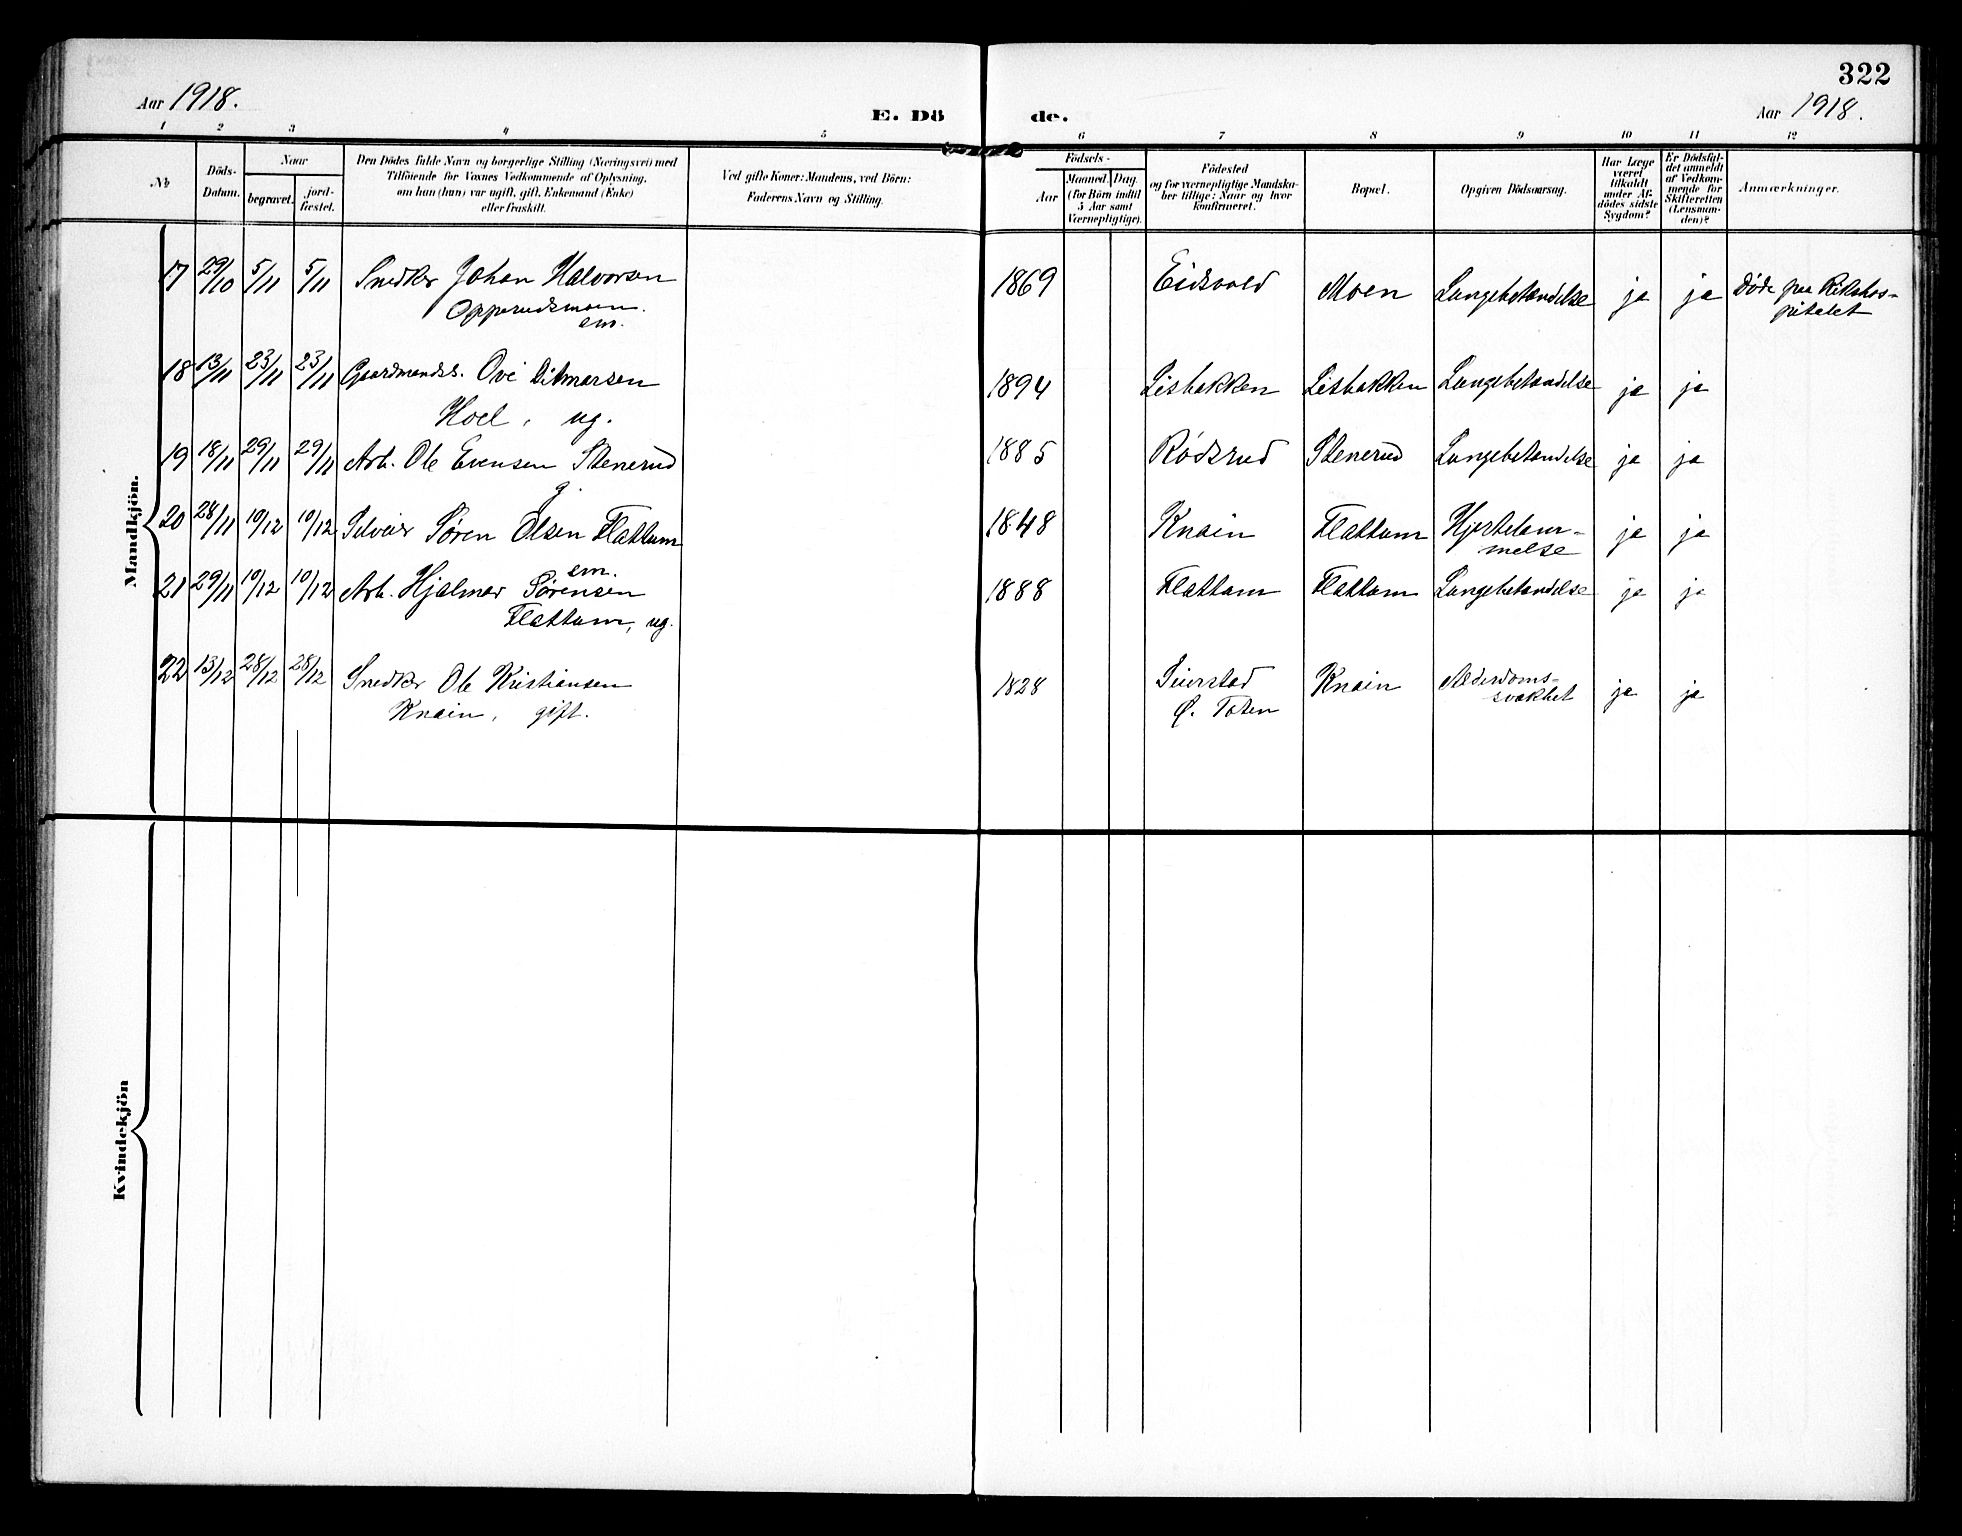 322
Aar 1918.
E. Dö
de.
Aar 1918.
1 2 3 4 5 6 7 8 9 10 11 12
No
Döds-
Datum.
Naar
begravet.
jord-
fæstet.
Den Dödes fulde Navn og borgerlige Stilling (Næringsvei) med
Tilföiende for Voxnes Vedkommende af Oplysning,
om han (hun) var ugift, gift, Enkemand (Enke)
eller fraskilt.
Ved gifte Koner: Mandens, ved Börn:
Faderens Navn og Stilling.
Födsels-
Aar
Maaned. Dag.
(for Börn indtil
5 Aar samt
Værnepligtige).
Födested
og for værnepligtige Mandska-
ber tillige: Naar og hvor
konfirmeret.
Bopæl.
Opgiven Dödsaarsag.
Har Læge
været
tilkaldt
under Af-
dödes sidste
Sygdom?
Er Dödsfal-
det anmeldt
af Vedkom-
mende for
Skifteretten
(Lensman-
den)?
Anmærkninger.
Mandkjön.
17 29/10 5/11 5/11 Snedker Johan Halvorsen 1869 Eidsvold Moen Lungebetændelse ja ja Døde paa Rikshos-
Opperudsmoen. pitalet
em.
18 13/11 23/11 23/11 Gaardmands. Ove Ditmarsen 1894 Lisbakken Lisbakken Lungebetændelse ja ja
Hoel, ug.
19 18/11 29/11 29/11 Arb. Ole Evensen Stenerud 1885 Rødsrud Stenerud Lungebetændelse ja ja
g.
20 28/11 10/12 10/12 Selveier Søren Olsen Flattum 1848 Knain Flattum Hjertelam- ja ja
em. melse
21 29/11 10/12 10/12 Arb. Hjalmar Sørensen 1888 Flattum Flattum Lungebetændelse ja ja
Flattum, ug.
22 13/12 28/12 28/12 Snedker Ole Kristiansen 1828 Seierstad Knain Alderdoms- ja ja
Knain, gift. Ø. Toten svakhet
Kvindekjön